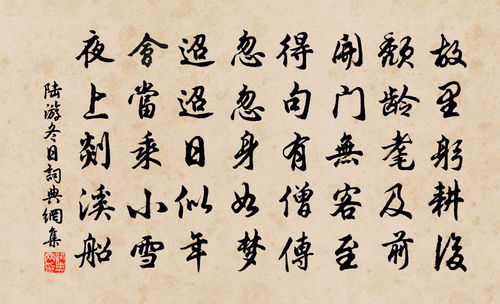 故里躬耕後
頹齡耄及前
開門無客至
得句有僧傳
忽忽身如夢
迢迢日似年
會當乘小雪
夜上剡溪船
陸游冬日詞典網集